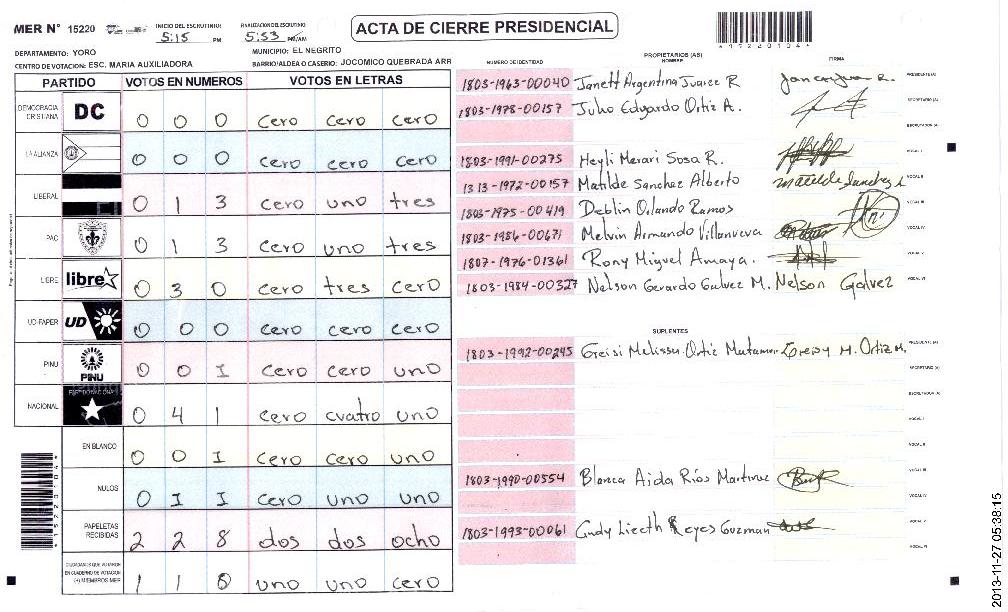 MER N° 15220
INICIO DEL ESCRUTINIO: 5:15 PM
FINALIZACION DEL ESCRUTINIO 5:53 PM/AM
ACTA DE CIERRE PRESIDENCIAL
DEPARTAMENTO: YORO
MUNICIPIO: EL NEGRITO
CENTRO DE VOTACION: ESC. MARIA AUXILIADORA
BARRIO/ALDEA O CASERIO: JOCOMICO QUEBRADA ARR
PARTIDO VOTOS EN NUMEROS VOTOS EN LETRAS
DEMOCRACIA CRISTIANA DC 0 0 0 cero cero cero
LA ALIANZA 0 0 0 cero cero cero
LIBERAL 0 1 3 cero uno tres
PAC 0 1 3 cero uno tres
LIBRE libre 0 3 0 cero tres cero
UD-FAPER UD 0 0 0 cero cero cero
PINU PINU 0 0 1 cero cero uno
NACIONAL 0 4 1 cero cuatro uno
EN BLANCO 0 0 1 cero cero uno
NULOS 0 1 1 cero uno uno
PAPELETAS RECIBIDAS 2 2 8 dos dos ocho
CIUDADANOS QUE VOTARON EN CUADERNO DE VOTACION (+) MIEMBROS MER 1 1 0 uno uno cero
NUMERO DE IDENTIDAD PROPIETARIOS (AS) NOMBRE FIRMA
1803-1963-00040 Janett Argentina Juarez R PRESIDENTE (A)
1803-1978-00157 Julio Edgardo Ortiz A. SECRETARIO (A)
ESCRUTADOR (A)
1803-1991-00275 Heyli Merari Sosa R. VOCAL I
1313-1972-00157 Matilde Sanchez Alberto VOCAL II
1803-1975-00419 Deblin Orlando Ramos VOCAL III
1803-1986-00671 Melvin Armando Villanueva VOCAL IV
1807-1976-01361 Rony Miguel Amaya. VOCAL V
1803-1984-00327 Nelson Gerardo Galvez M. Nelson Galvez VOCAL VI
SUPLENTES
1803-1992-00245 Greisi Melissa Ortiz Matamor Greisy M. Ortiz M. PRESIDENTE (A)
SECRETARIO (A)
ESCRUTADOR (A)
VOCAL I
VOCAL II
1803-1990-00554 Blanca Aida Ríos Martinez VOCAL III
VOCAL IV
1803-1993-00061 Cindy Lizeth Reyes Guzman VOCAL V
VOCAL VI
2013-11-27 05:38:15